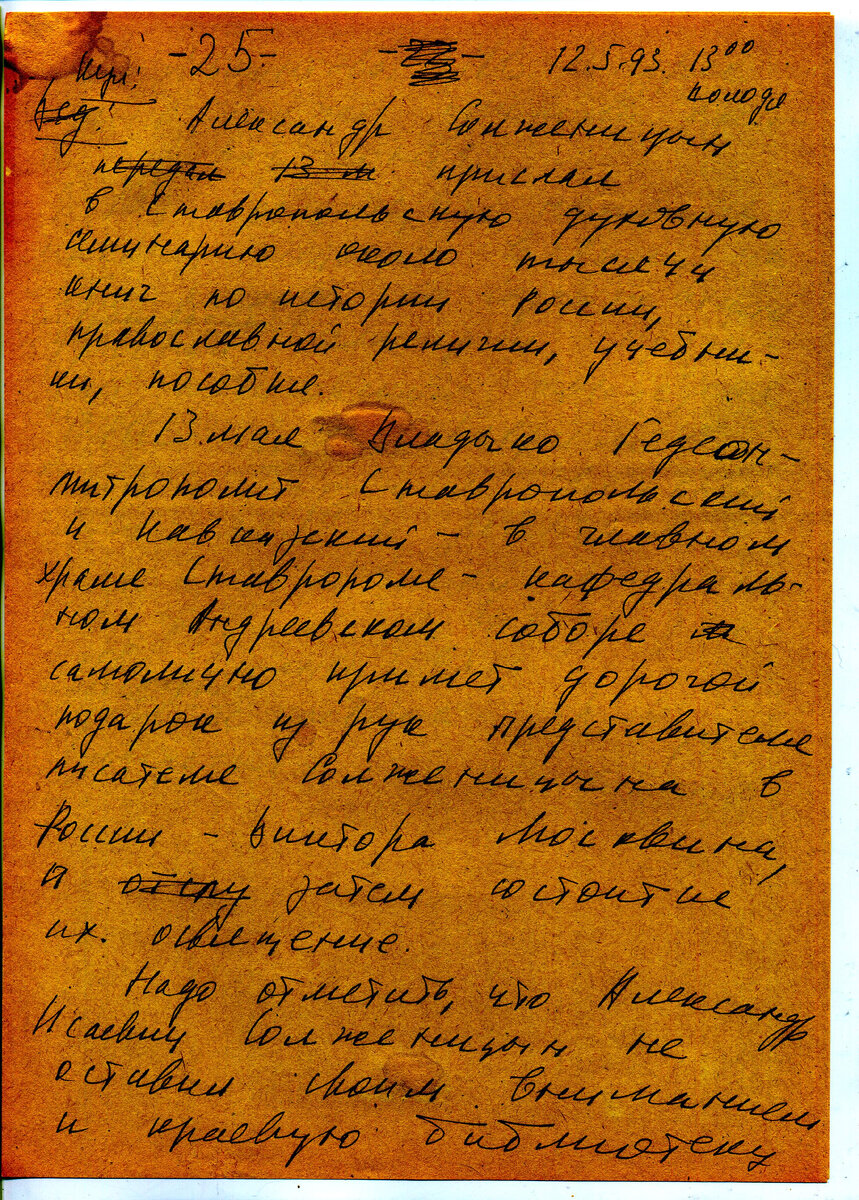 -25- 12.5.93. 13⁰⁰
Александр Солженицын
передал 13 м прислал
в Ставропольскую духовную
семинарию около тысячи
книг по истории России,
православной религии, учебни-
ки, пособие.
13 мая Владыко Гедеон-
митрополит Ставропольский
и Кавказский - в главном
храме Ставророле - кафедраль-
ном Андреевском соборе
самолично примет дорогой
подарок из рук представителе
писателе Солженицына в
России - Виктора Москвина,
и затем состоитце
их. освещение.
Надо отметить, что Александр
Исаевич Солженицын не
оставил своим вниманием
и краевую библиотеку